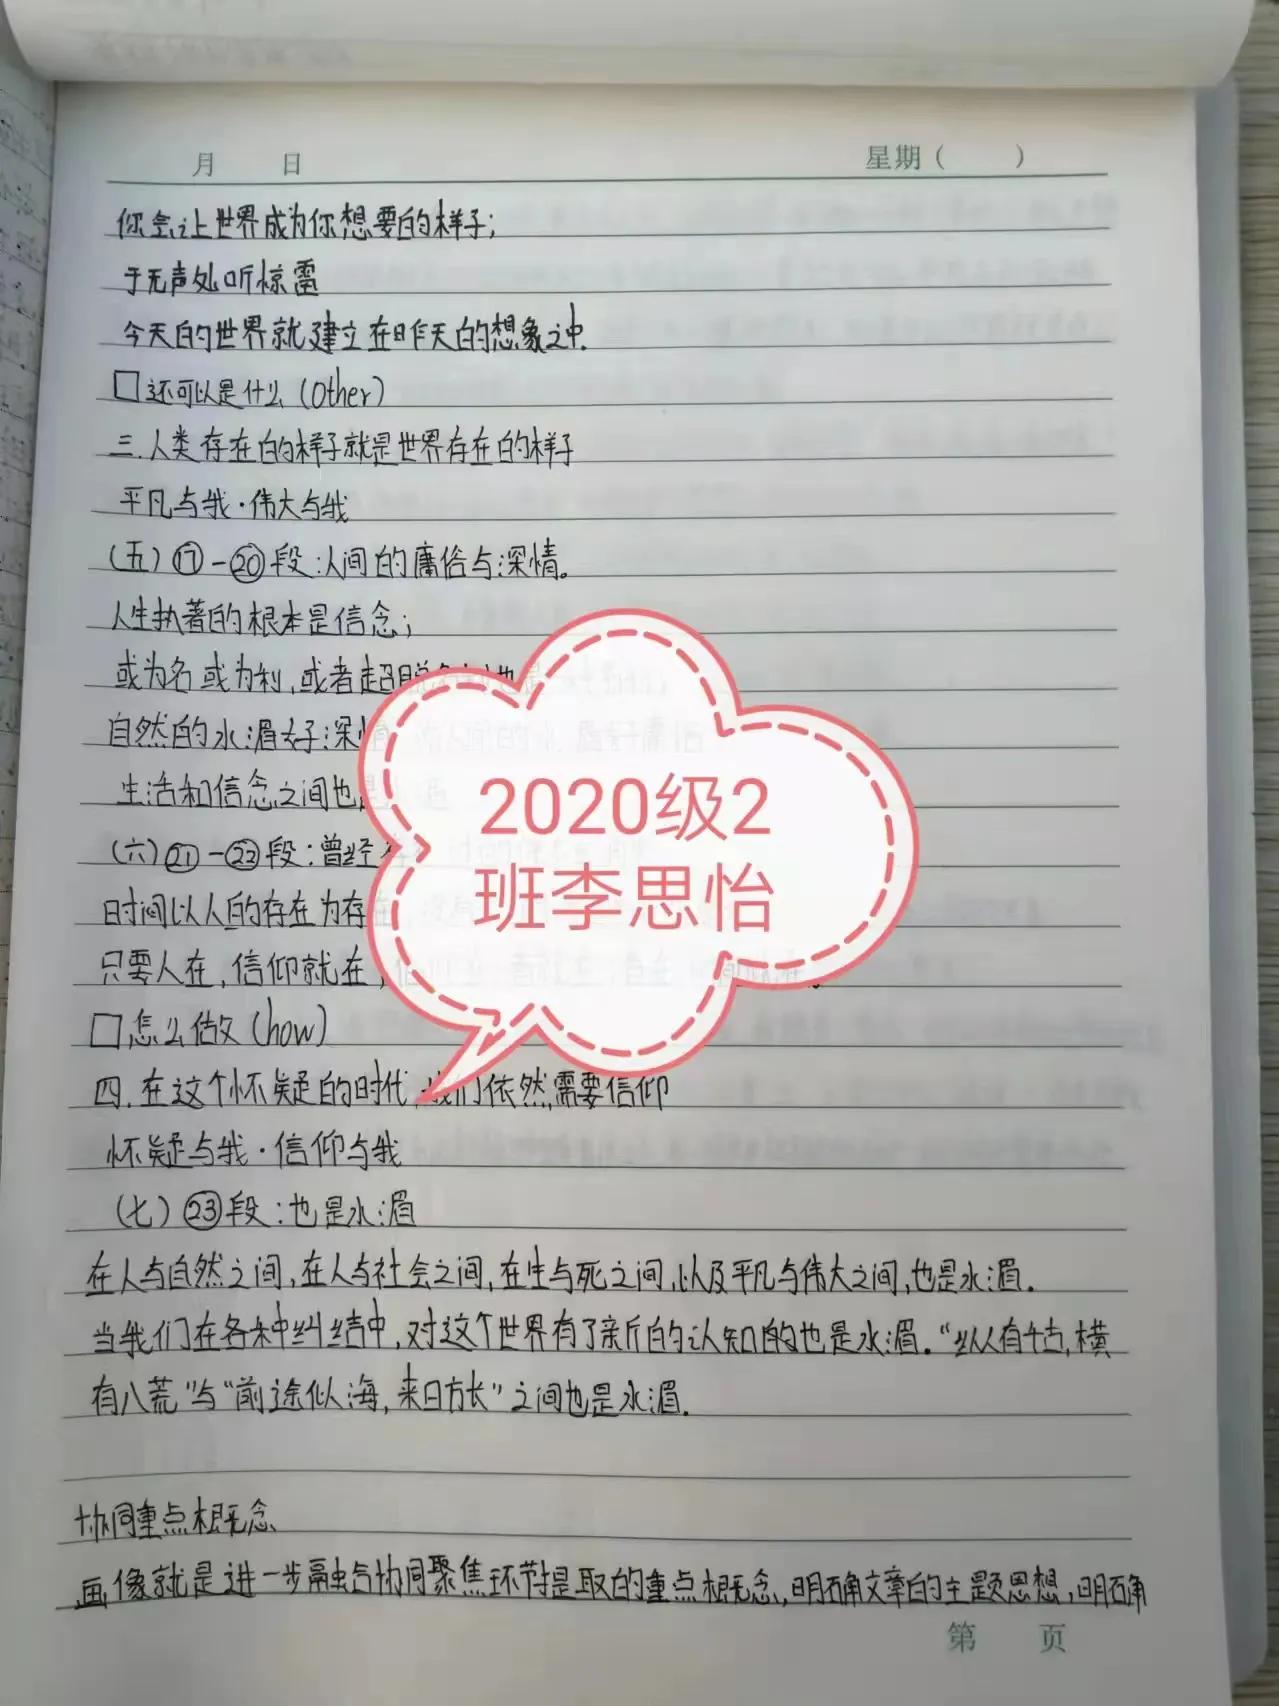 月 日 星期( )
你会让世界成为你想要的样子;
于无声处听惊雷
今天的世界就建立在昨天的想象之中.
□还可以是什么(Other)
三.人类存在的样子就是世界存在的样子
平凡与我·伟大与我
(五)⑰-⑳段:人间的庸俗与深情。
人生执著的根本是信念;
或为名或为利,或者超脱
自然的水湄好深情
生活和信念之间也是水湄
(六)㉑-㉒段:曾经存
时间以人的存在为存在,没有
只要人在,信仰就在,
□怎么做(how)
四.在这个怀疑的时代,我们依然需要信仰
怀疑与我·信仰与我
(七)㉓段:也是水湄
在人与自然之间,在人与社会之间,在生与死之间,以及平凡与伟大之间,也是水湄.
当我们在各种纠结中,对这个世界有了新的认知的也是水湄."纵有千古,横
有八荒"与"前途似海,来日方长"之间也是水湄.
协同重点概念
画像就是进一步融合协同聚焦环节提取的重点概念,明确文章的主题思想,明确
第 页
2020级2
班李思怡